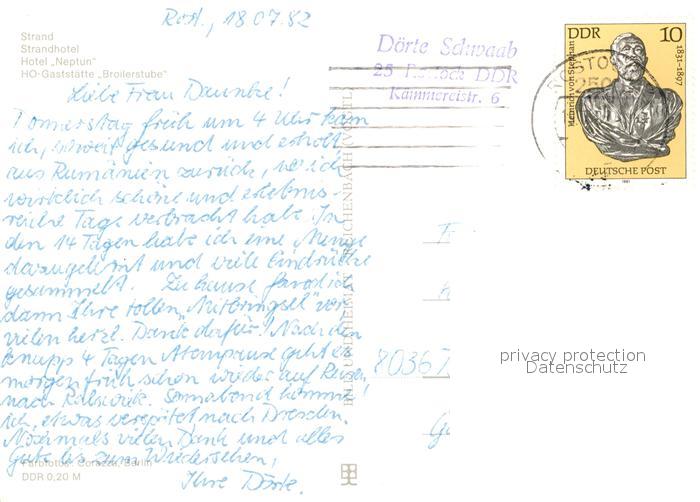 Rost., 18.07.82
Strand
Strandhotel
Hotel „Neptun"
HO-Gaststätte „Broilerstube"
Liebe Frau
Donnerstag früh um 4 Uhr kam
ich, soweit gesund und erholt
aus Rumänien zurück, wo ich
wirklich schöne und erlebnis-
reiche Tage verbracht habe. In
den 14 Tagen habe ich eine Menge
dazugelernt und viele Eindrücke
gesammelt. Zu Hause fand ich
dann Ihre tollen „Mitbringsel" vor,
vielen herzl. Dank dafür! Nach den
knapp 4 Tagen Atempause geht es
morgen früh schon wieder auf Reisen,
nach Ralswiek. Sonnabend komme
ich, etwas verspätet nach Dresden.
Nochmals vielen Dank und alles
Gute bis zum Wiedersehen,
Ihre Dörte.
Farbfotos: Corazza, Berlin
DDR 0,20 M
BILD UND HEIMAT REICHENBACH (VOGTL)
Dörte Schwaab
25 Rostock DDR
Kammereistr. 6
DDR 10
Heinrich von Stephan
1831-1897
DEUTSCHE POST
1981
ROSTO
250
80367
privacy protection
Datenschutz